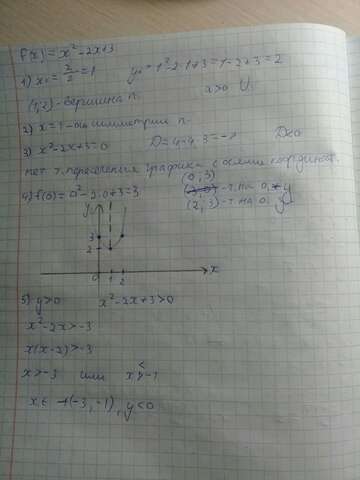 f(x) = x² - 2x + 3
1) x₀ = 2/2 = 1 y₀ = 1² - 2·1 + 3 = 1 - 2 + 3 = 2
(1; 2) - вершина п. a>0 U
2) x = 1 - ось симметрии п.
3) x² - 2x + 3 = 0 D = 4 - 4·3 = -8 D<0
нет т. пересечения графика с осями координат.
(0; 3)
4) f(0) = 0² - 2·0 + 3 = 3 - т. на оу
(2; 3) - т. на о
y
3
2
0 1 2 x
5) y>0 x² - 2x + 3 > 0
x² - 2x > -3
x(x - 2) > -3
x > -3 или x < -1
x ∈ (-3, -1), y<0